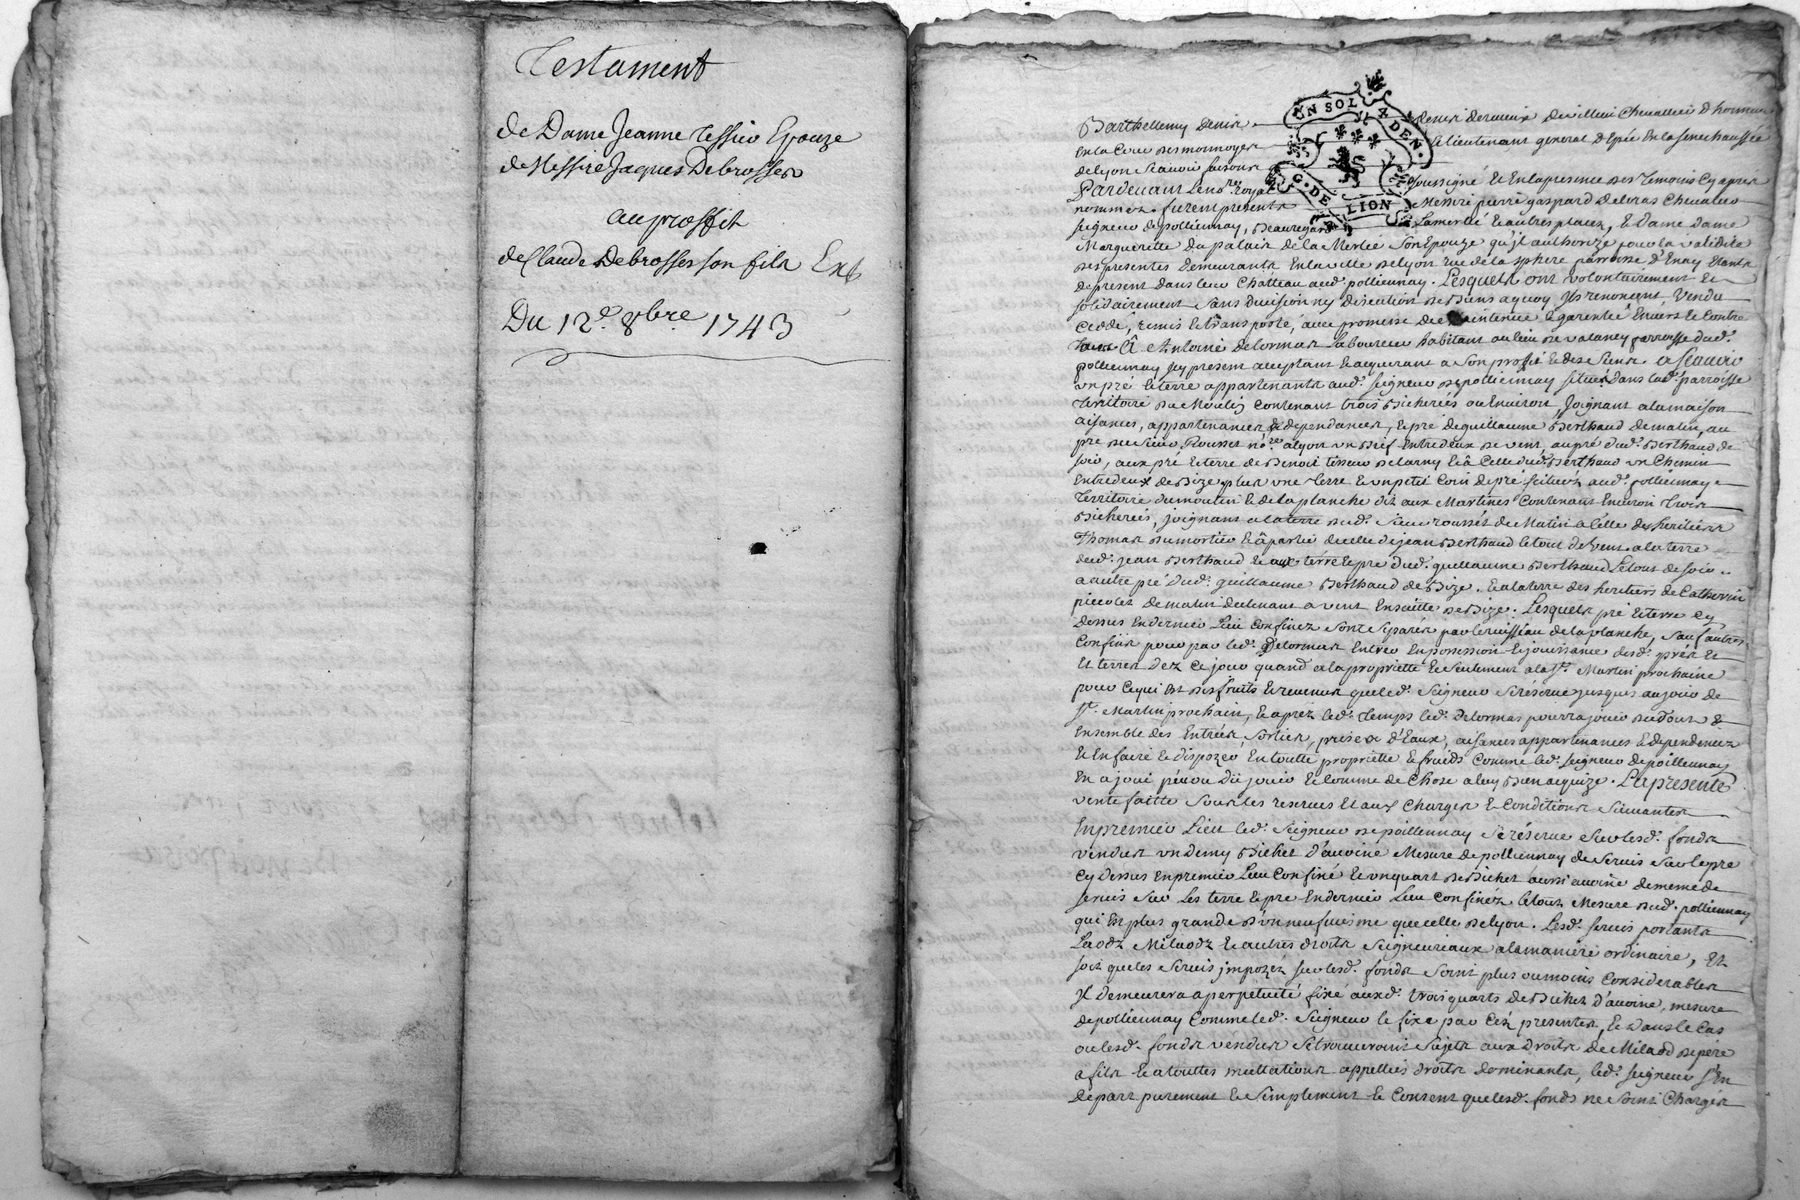 Testament
de Dame Jeanne Tessier Epouze
de Messire Jacques Debrosses
au proffit
de Claude Debrosses son fils Ext
Du 12e. 8bre 1743
UN SOL 4 DEN.
G. DE LION
Barthellemy Denis Denis De cuzieu Chevallier d'honneur
En la Cour des monnoyes Lieutenant general d'Epée En la senechaussée
de lyon Scavoir faisons
Pardevant Le nore. Royal soussigné Et En la presence des Temoins Cy apres
nommez. furent presents Messire pierre gaspard De bras Chevalier
seigneur de polliennay, Beauregard Lamerlée & autres places, & Dame Dame
Marguerite Du palais de la Merlée Son Epouze qu'jl authorize pour la validité
Des presentes Demeurants En la ville de Lyon rue de la sphere parroisse d'Enay Etants
de present dans leur Château aud. polliennay. Lesquels ont volontairement &
solidairement sans division ny discution de Biens a quoy jls renoncent, Vendu
Ceddé, remis & transporté, avec promesse de maintenir & garentir Envers & Contre
tous â Antoine Delormas Laboureur habitant au lieu de valancy parroisse dud.
polliennay jcy present acceptant & acquerant a son proffit & des Siens. a Scavoir
un pré & terre appartenants aud. seigneur de polliennay situés dans lad. parroisse
Territoire du Moulin Contenant trois Bicherées ou Environ Joignant a la maison
aisances, appartenances & dependances, & pré de guillaume Berthaud de matin, au
pré du Sieur Rousset nore. a lyon un Bief Entredeux de vent, au pré dud. Berthaud de
soir, aux pré & terre de Benoit tisseur de larny & â Celle dud. Berthaud un Chemin
Entredeux de Bize plus une Terre & un petit Coin de pré scituez aud. polliennay
Territoire du moulin & de la planche dit aux Martines Contenant Environ trois
Bicherées, joignants a la terre dud. Sieur roussét de Matin a Celle des heritiers
Thomas Dumortier & â partie de celle de jean Berthaud le tout de vent. a la terre
dud. jean Berthaud & aux térre & pre dud. guillaume Berthaud Le tout de soir
a autre pré dud. guillaume Berthaud de Bize. & a la terre des heritiers de Catherin
piccolet de matin declinant a vent Ensuitte de Bize. Lesquels pré & terre Cy
Dessus En dernier Lieu Confinez sont Separés par le ruisseau de la planche, sauf autres
Confins pour par led. Delormas Entrer En possession & jouissance desd. prés &
Et terres dez ce jour quand a la proprietté & seulement a la St. Martin prochaine
pour Ce qui Est des fruits & revenus que led. Seigneur se reserve jusques au jour de
St. Martin prochain, & aprez led. Temps led. Delormas pourra jouir du Tout &
Ensemble des Entrées, Sorties, prises d'Eaux, aisances appartenances & dependences
Et En faire & dispozer, En toutte proprietté & fruids Comme led. Seigneur de poillennay
En a joui pû ou Dû jouir & Comme de Chose a luy Bien acquize. La presente
vente faitte Sous les reserves Et aux Charges & Conditions Suivantes
En premier Lieu led. Seigneur de poillennay se réserve Sur lesd. fonds
vendus un demy Bichet d'avoine Mesure de polliennay de Servis Sur le pre
Cy dessus En premier Lieu Confiné & un quart de Bichet aussi avoine de meme de
servis Sur Les terre & pre En dernier Lieu Confinéz le tout Mesure dud. polliennay
qui Est plus grande d'un neufvieme que celle de Lyon. Lesd. servis portants
Laodz Milaodz & autres droits Seigneuriaux a la maniére ordinaire, Et
soit que les Servis jmpozez sur lesd. fonds Soint plus ou moins Considerables
Jl demeurera a perpétuité fixé auxd. trois quarts de Bichet d'avoine, mesure
de polliennay Comme led. Seigneur le fixe par Ces presentes, & Dans le Cas
ou lesd. fonds véndus Se trouveroint Sujets aux Droits de Milaod de pére
a fils & a touttes muttations appellés droits Dominants, led. seigneur s'En
depart purement & Simplement & Consent que lesd. fonds ne soint Chargés